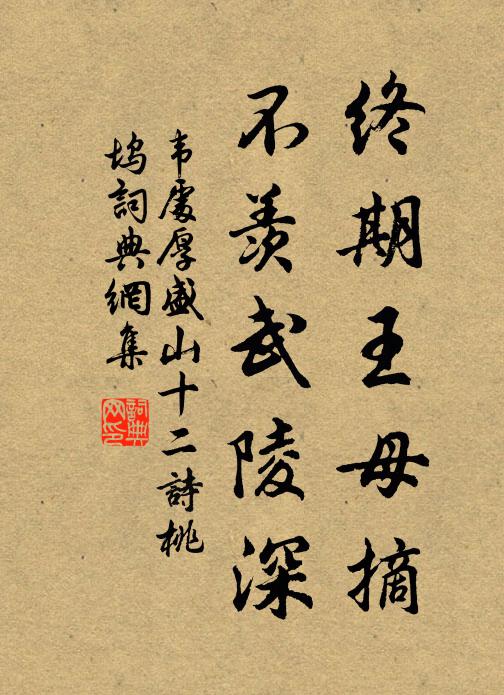 终期王母摘
不羡武陵深
韦處厚盛山十二詩桃
塢詞典網集
詞典
网印